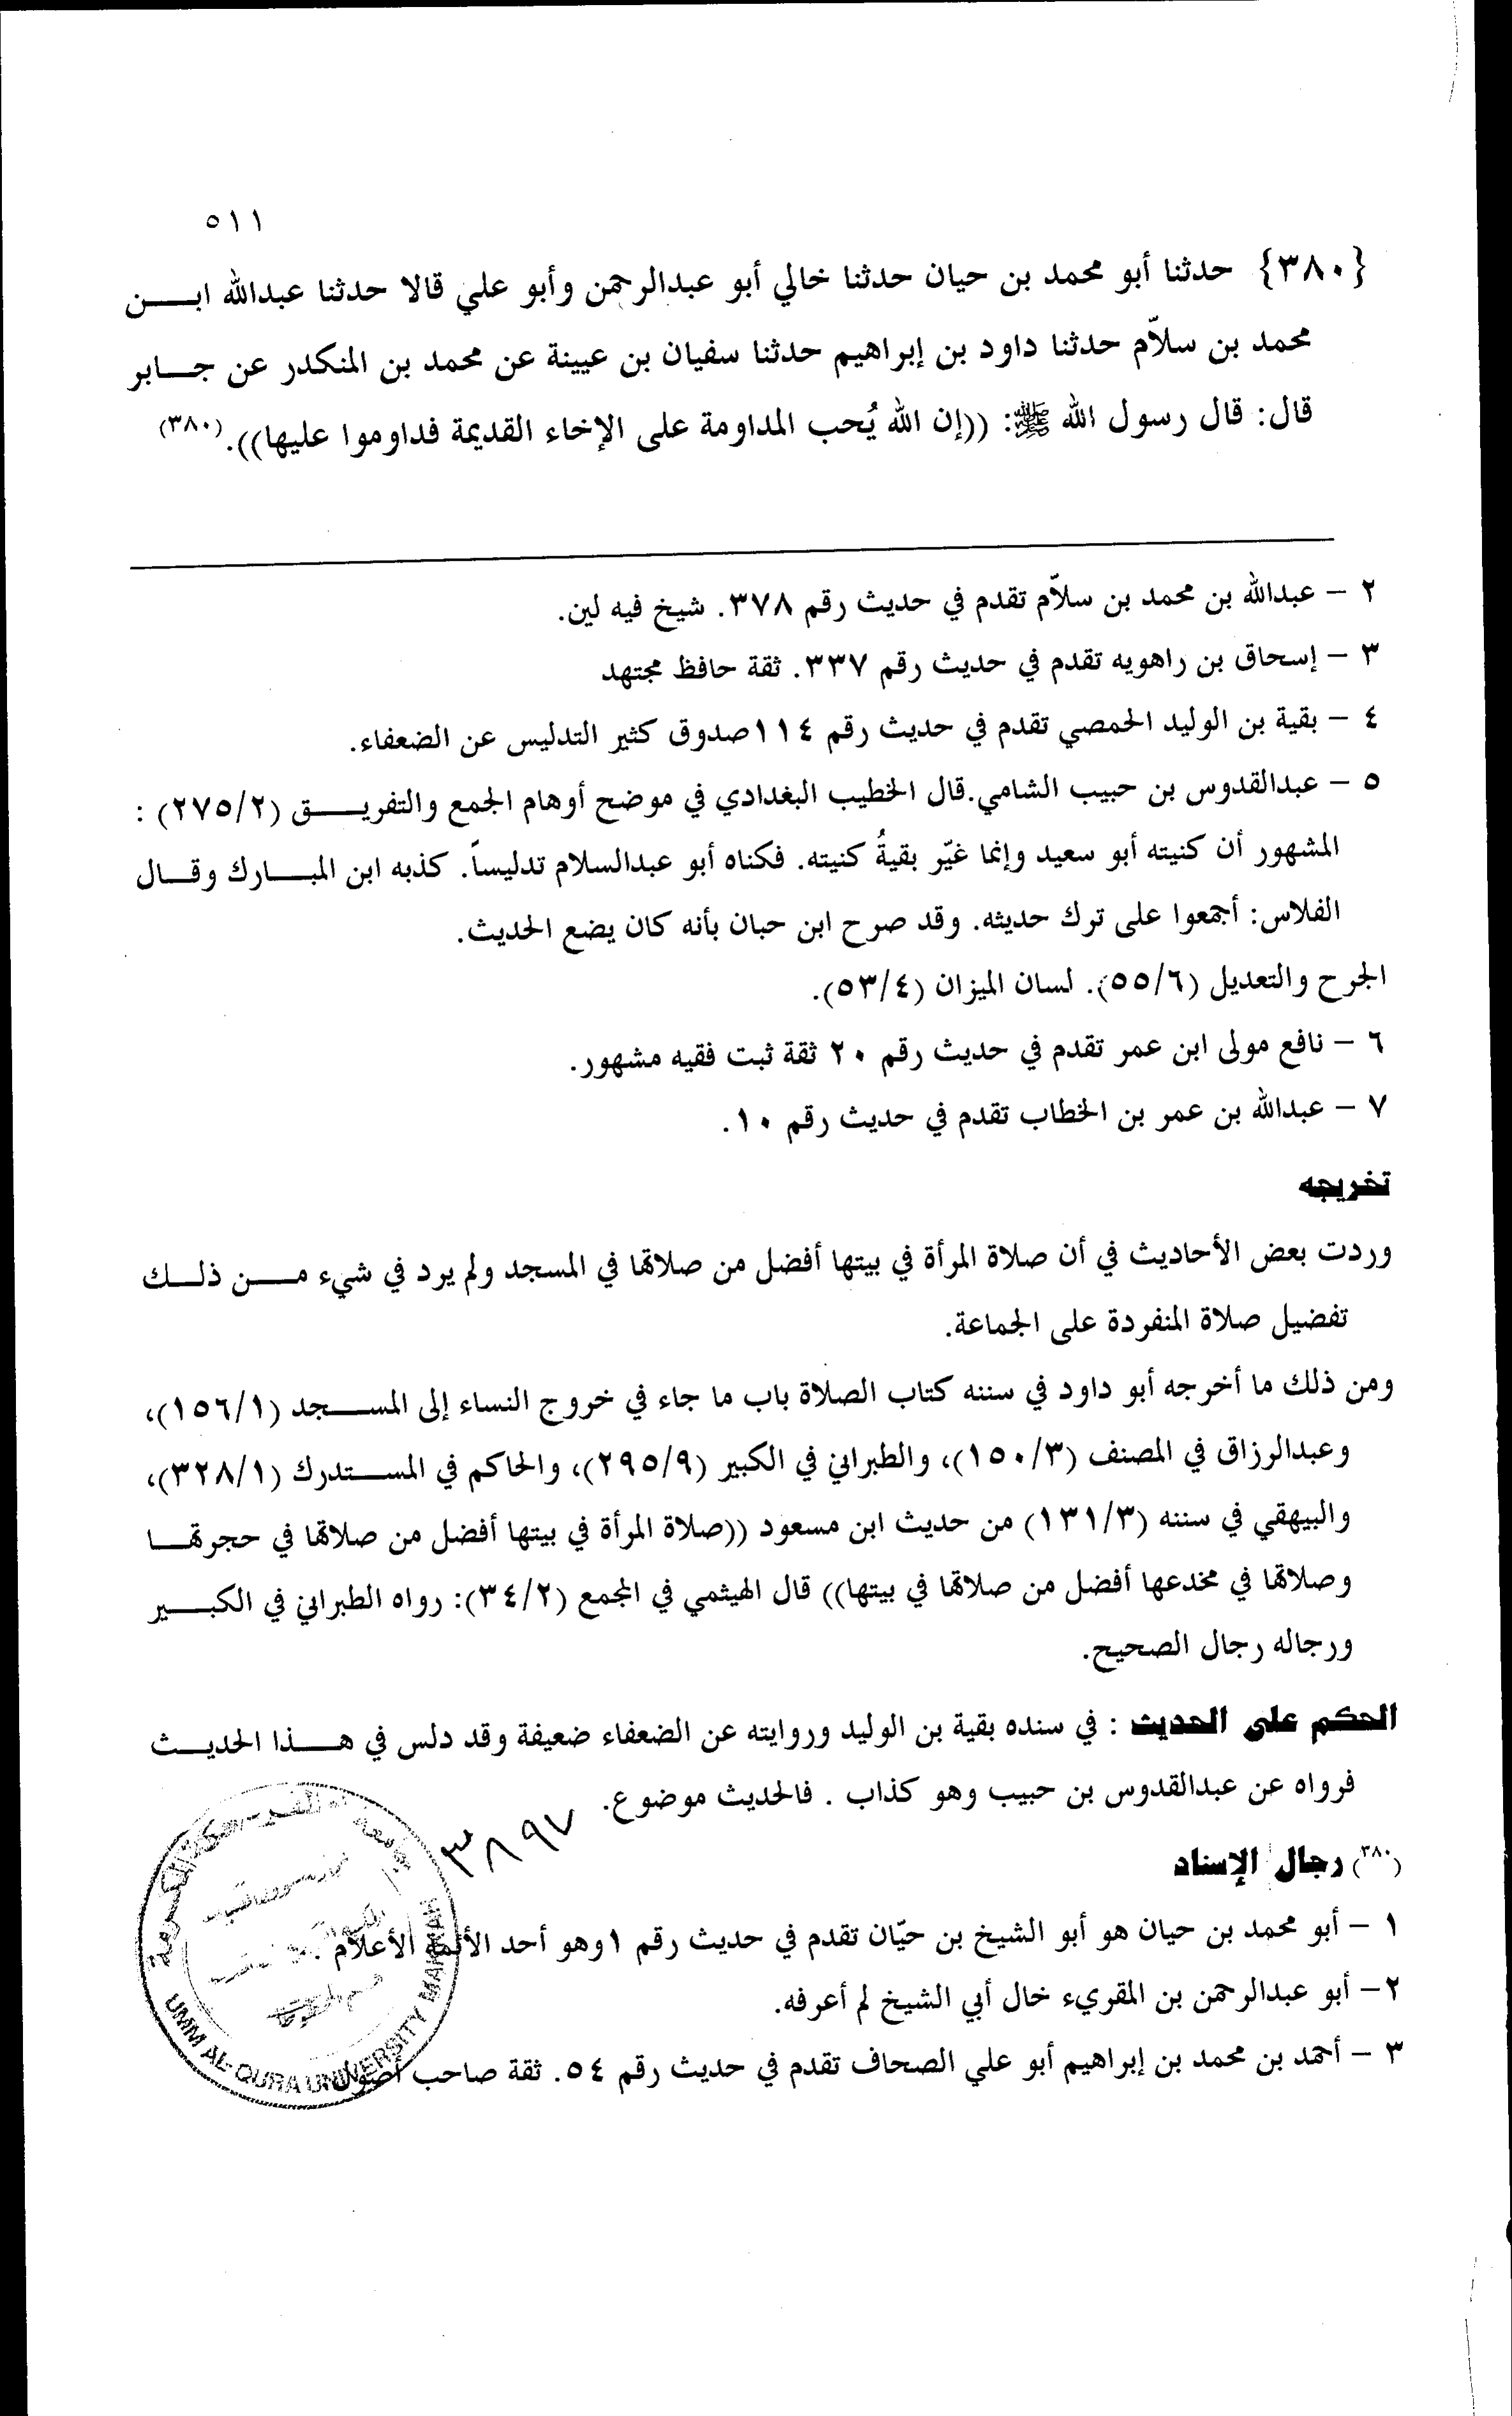 ٥١١
{٣٨٠} حدثنا أبو محمد بن حيان حدثنا خالي أبو عبدالرحمن وأبو علي قالا حدثنا عبدالله ابن
محمد بن سلاّم حدثنا داود بن إبراهيم حدثنا سفيان بن عيينة عن محمد بن المنكدر عن جابر
قال: قال رسول الله ﷺ: ((إن الله يُحب المداومة على الإخاء القديمة فداوموا عليها)).(٣٨٠)
٢ – عبدالله بن محمد بن سلاّم تقدم في حديث رقم ٣٧٨. شيخ فيه لين.
٣ – إسحاق بن راهويه تقدم في حديث رقم ٣٣٧. ثقة حافظ مجتهد
٤ – بقية بن الوليد الحمصي تقدم في حديث رقم ١١٤صدوق كثير التدليس عن الضعفاء.
٥ – عبدالقدوس بن حبيب الشامي.قال الخطيب البغدادي في موضح أوهام الجمع والتفريق (٢٧٥/٢) :
المشهور أن كنيته أبو سعيد وإنما غيّر بقيةُ كنيته. فكناه أبو عبدالسلام تدليساً. كذبه ابن المبارك وقال
الفلاس: أجمعوا على ترك حديثه. وقد صرح ابن حبان بأنه كان يضع الحديث.
الجرح والتعديل (٥٥/٦). لسان الميزان (٥٣/٤).
٦ – نافع مولى ابن عمر تقدم في حديث رقم ٢٠ ثقة ثبت فقيه مشهور.
٧ – عبدالله بن عمر بن الخطاب تقدم في حديث رقم ١٠.
تخريجه
وردت بعض الأحاديث في أن صلاة المرأة في بيتها أفضل من صلاتها في المسجد ولم يرد في شيء من ذلك
تفضيل صلاة المنفردة على الجماعة.
ومن ذلك ما أخرجه أبو داود في سننه كتاب الصلاة باب ما جاء في خروج النساء إلى المسجد (١٥٦/١)،
وعبدالرزاق في المصنف (١٥٠/٣)، والطبراني في الكبير (٢٩٥/٩)، والحاكم في المستدرك (٣٢٨/١)،
والبيهقي في سننه (١٣١/٣) من حديث ابن مسعود ((صلاة المرأة في بيتها أفضل من صلاتها في حجرتها
وصلاتها في مخدعها أفضل من صلاتها في بيتها)) قال الهيثمي في المجمع (٣٤/٢): رواه الطبراني في الكبير
ورجاله رجال الصحيح.
الحكم على الحديث : في سنده بقية بن الوليد وروايته عن الضعفاء ضعيفة وقد دلس في هذا الحديث
فرواه عن عبدالقدوس بن حبيب وهو كذاب . فالحديث موضوع.
٣٨٩٧
(٣٨٠) رجال الإسناد
١ – أبو محمد بن حيان هو أبو الشيخ بن حيّان تقدم في حديث رقم ١وهو أحد الأئمة الأعلام .
٢– أبو عبدالرحمن بن المقريء خال أبي الشيخ لم أعرفه.
٣ – أحمد بن محمد بن إبراهيم أبو علي الصحاف تقدم في حديث رقم ٥٤. ثقة صاحب أصول.
UMM AL-QURA UNIVERSITY MAKKAH